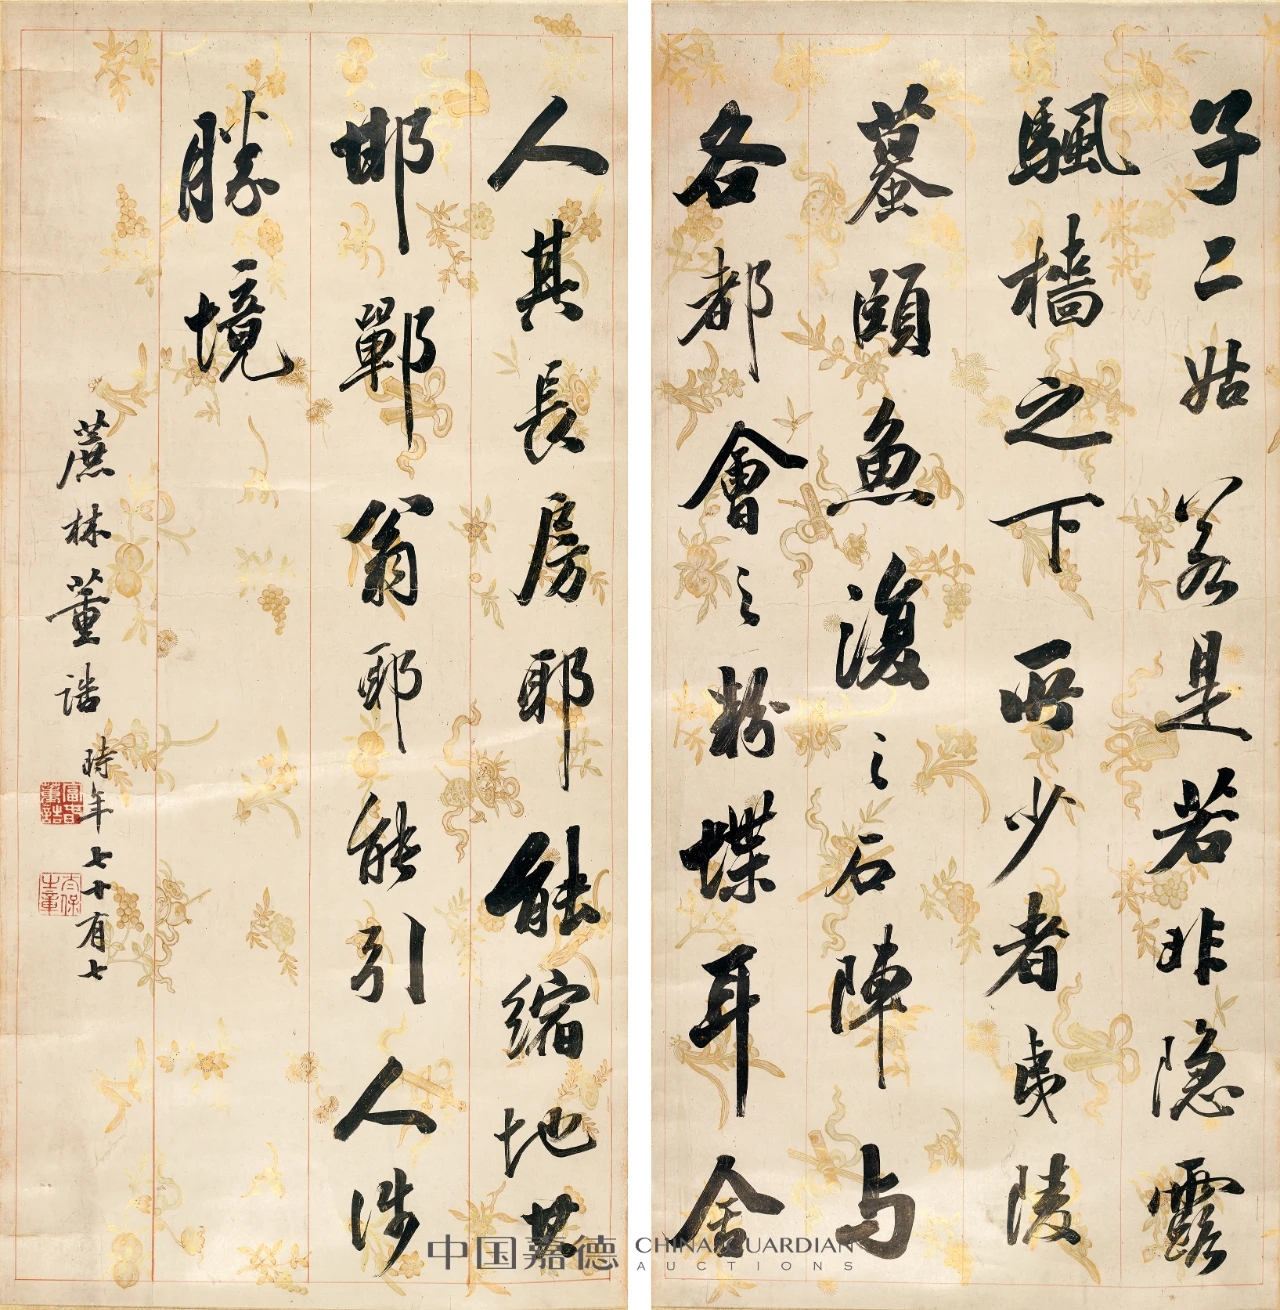 子二姑若是若非隐露
颿檣之下所少者夷陵
蟇頤魚復之石陣与
各都會之粉蝶耳舍
人其長房耶能縮地其
邯鄲翁耶能引人涉
勝境
蔗林董誥時年七十有七
富春董誥
太保
中国嘉德 CHINA GUARDIAN AUCTIONS